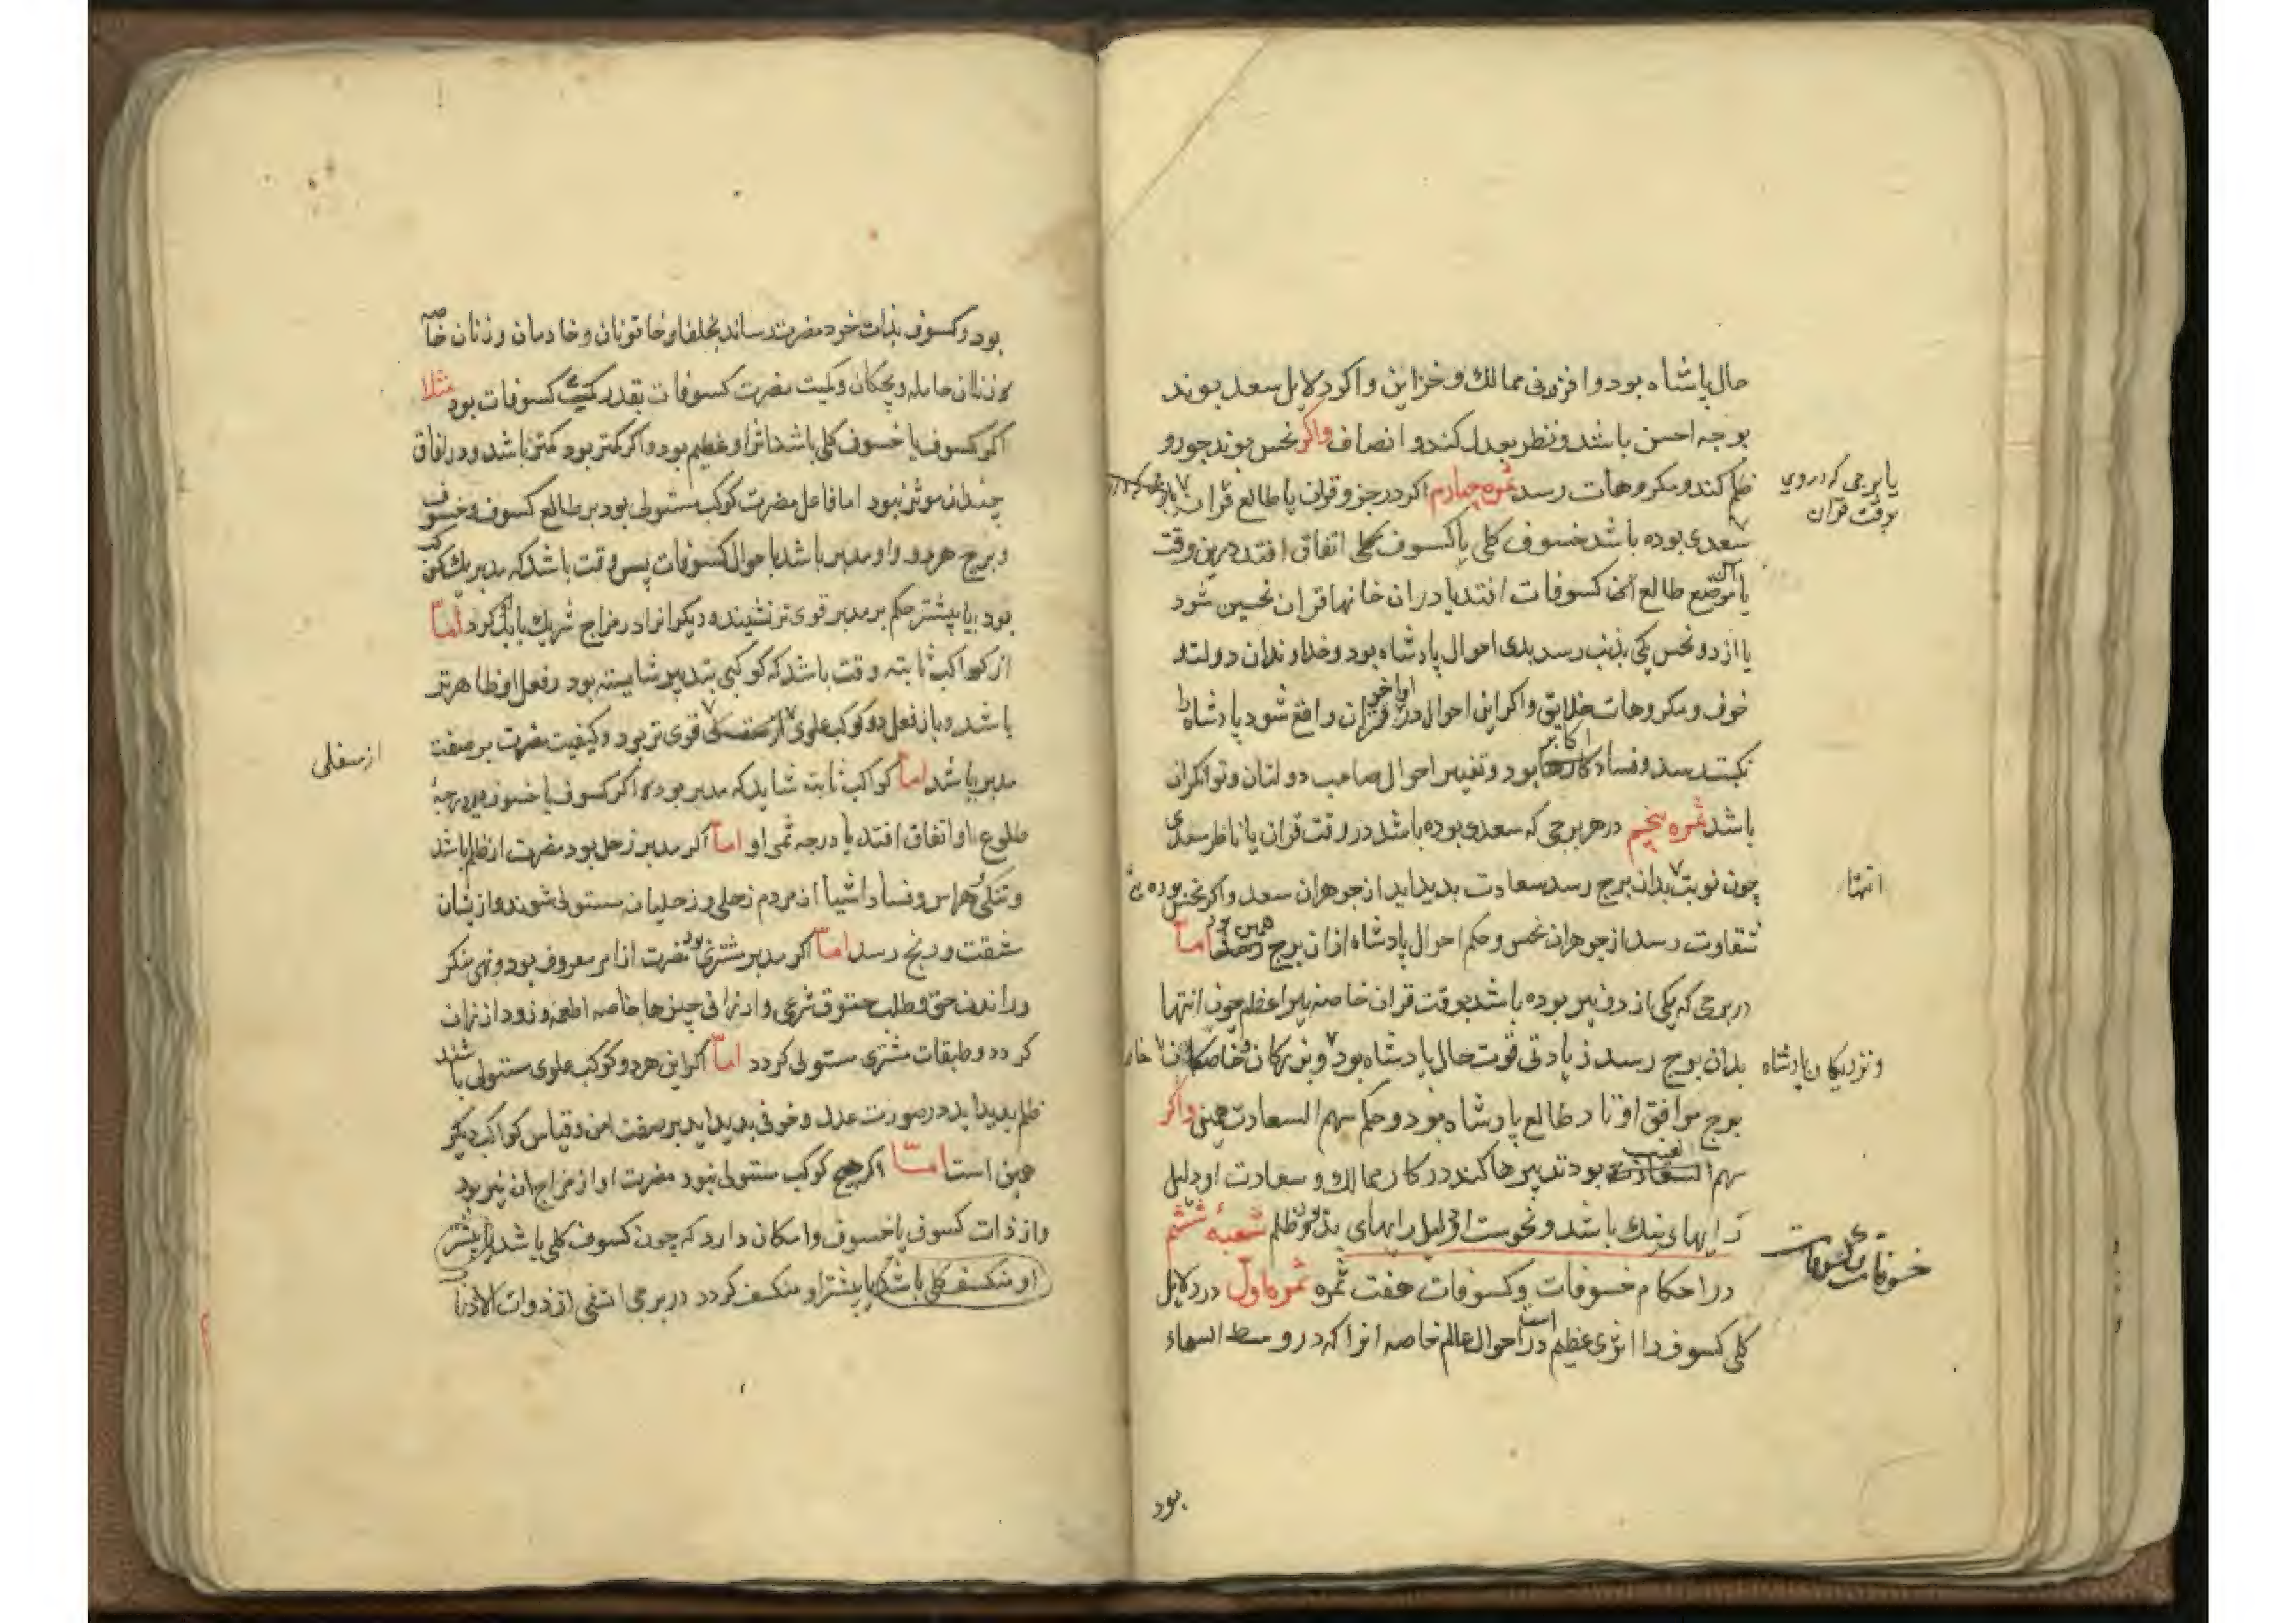 حال پاشاه بود و افزونی ممالك و خزاین و اکر دلایل سعد بوند
بوجه احسن باشد و نظر بعدل کند و انصاف واکر نحس بوند جور و
ظلم کند و مکروهات رسد ثمره چهارم اکر در جزو قران یا طالع قران
یا برجی که دروی
بوقت قران
سعدی بوده باشد خسوف کلی یا کسوف کلی اتفاق افتد درین وقت
یا موضع طالع آن کسوفات افتد یا دران خانها قران نحسین شود
یا از دو نحس یکی بذنب رسد بدی احوال پادشاه بود و خداوندان دولت و
خوف و مکروهات خلایق و اکر این احوال در اواخر قران واقع شود پادشاه را
نکبت رسد و فساد اکابر بود و تغییر احوال صاحب دولتان و توانکران
باشد ثمره پنجم در هر برجی که سعدی بوده باشد در وقت قران یا ناظر سعدی
چون نوبت بدان برج رسد سعادت بدید اید از جوهران سعد و اکر نحس بوده
انتها
شقاوت رسد از جوهران نحس و حکم احوال پادشاه ازان برج همین بود اما
در برجی که یکی از دو نیر بوده باشد بوقت قران خاصه نیر اعظم چون انتها
بدان برج رسد زیادتی قوت حال پادشاه بود و بزرکان و خاصکان
و نزدیکان پادشاه
برج موافق اوتاد طالع پادشاه بود و حکم سهم السعادت همین واکر
سهم الغیب بود تدبیرها کند در کار ممالك و سعادت او دلیل
رایهای نیك باشد و نحوست او دلیل رایهای بد و ظلم شعبهٔ ششم
در احکام خسوفات و کسوفات هفت ثمره ثمره اول در دلایل
خسوفات
کلی کسوف را اثری عظیم است در احوال عالم خاصه انرا که در وسط السماء
بود
بود و کسوف بذات خود مضرت رساند بخلفا و خاتونان و خادمان و زنان خاصه
و زنان حامله و بچکان و کمیت مضرت کسوفات بقدر کمیت کسوفات بود مثلا
اکر کسوف یا خسوف کلی باشد اثر او عظیم بود و اکر کمتر بود کمتر باشد و در افاق
چندان موثر نبود اما فاعل مضرت کوکب مستولی بود بر طالع کسوف و خسوف
و برج هر دو و او مدبر باشد با حوال کسوفات پس وقت باشد که مدبر یك کوکب
بود یا بیشتر حکم بر مدبر قوی تر نشیند و دیکر انرا در مزاج شریك باید کرد اما
از کواکب ثابته وقت باشد که کوکبی بتدبیر شایسته بود و فعل او ظاهرتر
باشد و باز فعل دو کوکب علوی قوی تر بود و کیفیت مضرت بر صفت
از سفلی
مدبر باشد اما کواکب ثابته شاید که مدبر بود اکر کسوف یا خسوف در درجهٔ
طلوع او اتفاق افتد یا درجه ثمر او اما اکر مدبر زحل بود مضرت از ظلم باشد
و تنکی و هراس و فساد اشیا از مردم زحلی و زحلیان مستولی شوند و ازیشان
مشقت و رنج رسد اما اکر مدبر مشتری بود مضرت از امر معروف بود و نهی منکر
و راندن حق و طلب حقوق شرعی و ارزانی چیزها خاصه اطعمه و زود ازان
کردد و طبقات مشتری مستولی کردد اما اکر این هر دو کوکب علوی مستولی باشند
ظلم بدید اید در صورت عدل و خوفی بدید اید بر صفت امن و قیاس کواکب دیکر
همین است اما اکر هیچ کوکب مستولی نبود مضرت او از مزاج ان نیر بود
و از ذات کسوف یا خسوف و امکان دارد که چون کسوف کلی باشد یا بیشتر
او منکسف کلی باشد یا بیشتر او منکسف کردد در برجی انسی از ذوات الاذناب